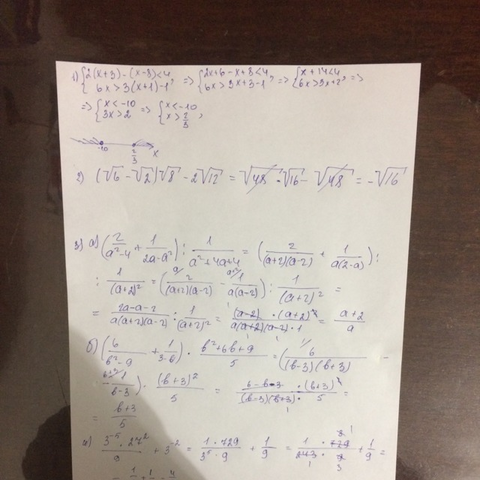 1) { 2(x+3) - (x-8) < 4, 6x > 3(x+1) - 1 ; => { 2x+6-x+8 < 4, 6x > 3x+3-1 ; => { x+14 < 4, 6x > 3x+2 ; =>
=> { x < -10, 3x > 2 => { x < -10, x > 2/3 ;
-10 2/3 x
2) (√6 - √2)√8 - 2√12 = √48 - √16 - √48 = -√16
3) а) (2/(a²-4) + 1/(2a-a²)) : 1/(a²+4a+4) = (2/((a+2)(a-2)) + 1/(a(2-a))) :
: 1/(a+2)² = (2/((a+2)(a-2)) - 1/(a(a-2))) : 1/(a+2)² =
= (2a-a-2)/(a(a+2)(a-2)) : 1/(a+2)² = ((a-2)·(a+2)²)/(a(a+2)(a-2)·1) = (a+2)/a
б) (6/(b²-9) + 1/(3-b)) · (b²+6b+9)/5 = (6/((b-3)(b+3)) -
- 1/(b-3)) · (b+3)²/5 = (6-b-3)/((b-3)(b+3)) · (b+3)²/5 =
= - (b+3)/5
3⁻⁵ · 27²/9 + 3⁻² = (1 · 729)/(3⁵ · 9) + 1/9 = (1 · 729)/(243 · 9) + 1/9 =